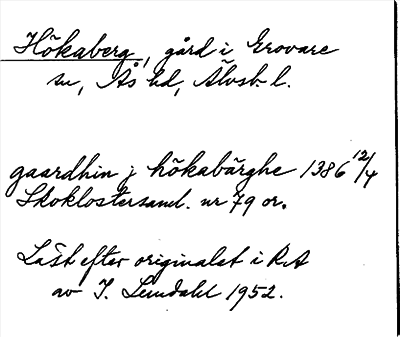 Hökaberg, gård i Grovare
sn, Ås hd, Älvsb. l.
gaardhin j hökabärghe 1386 12/4
Skoklostersaml. nr 79 or.
Läst efter originalet i RA
av I. Lundahl 1952.